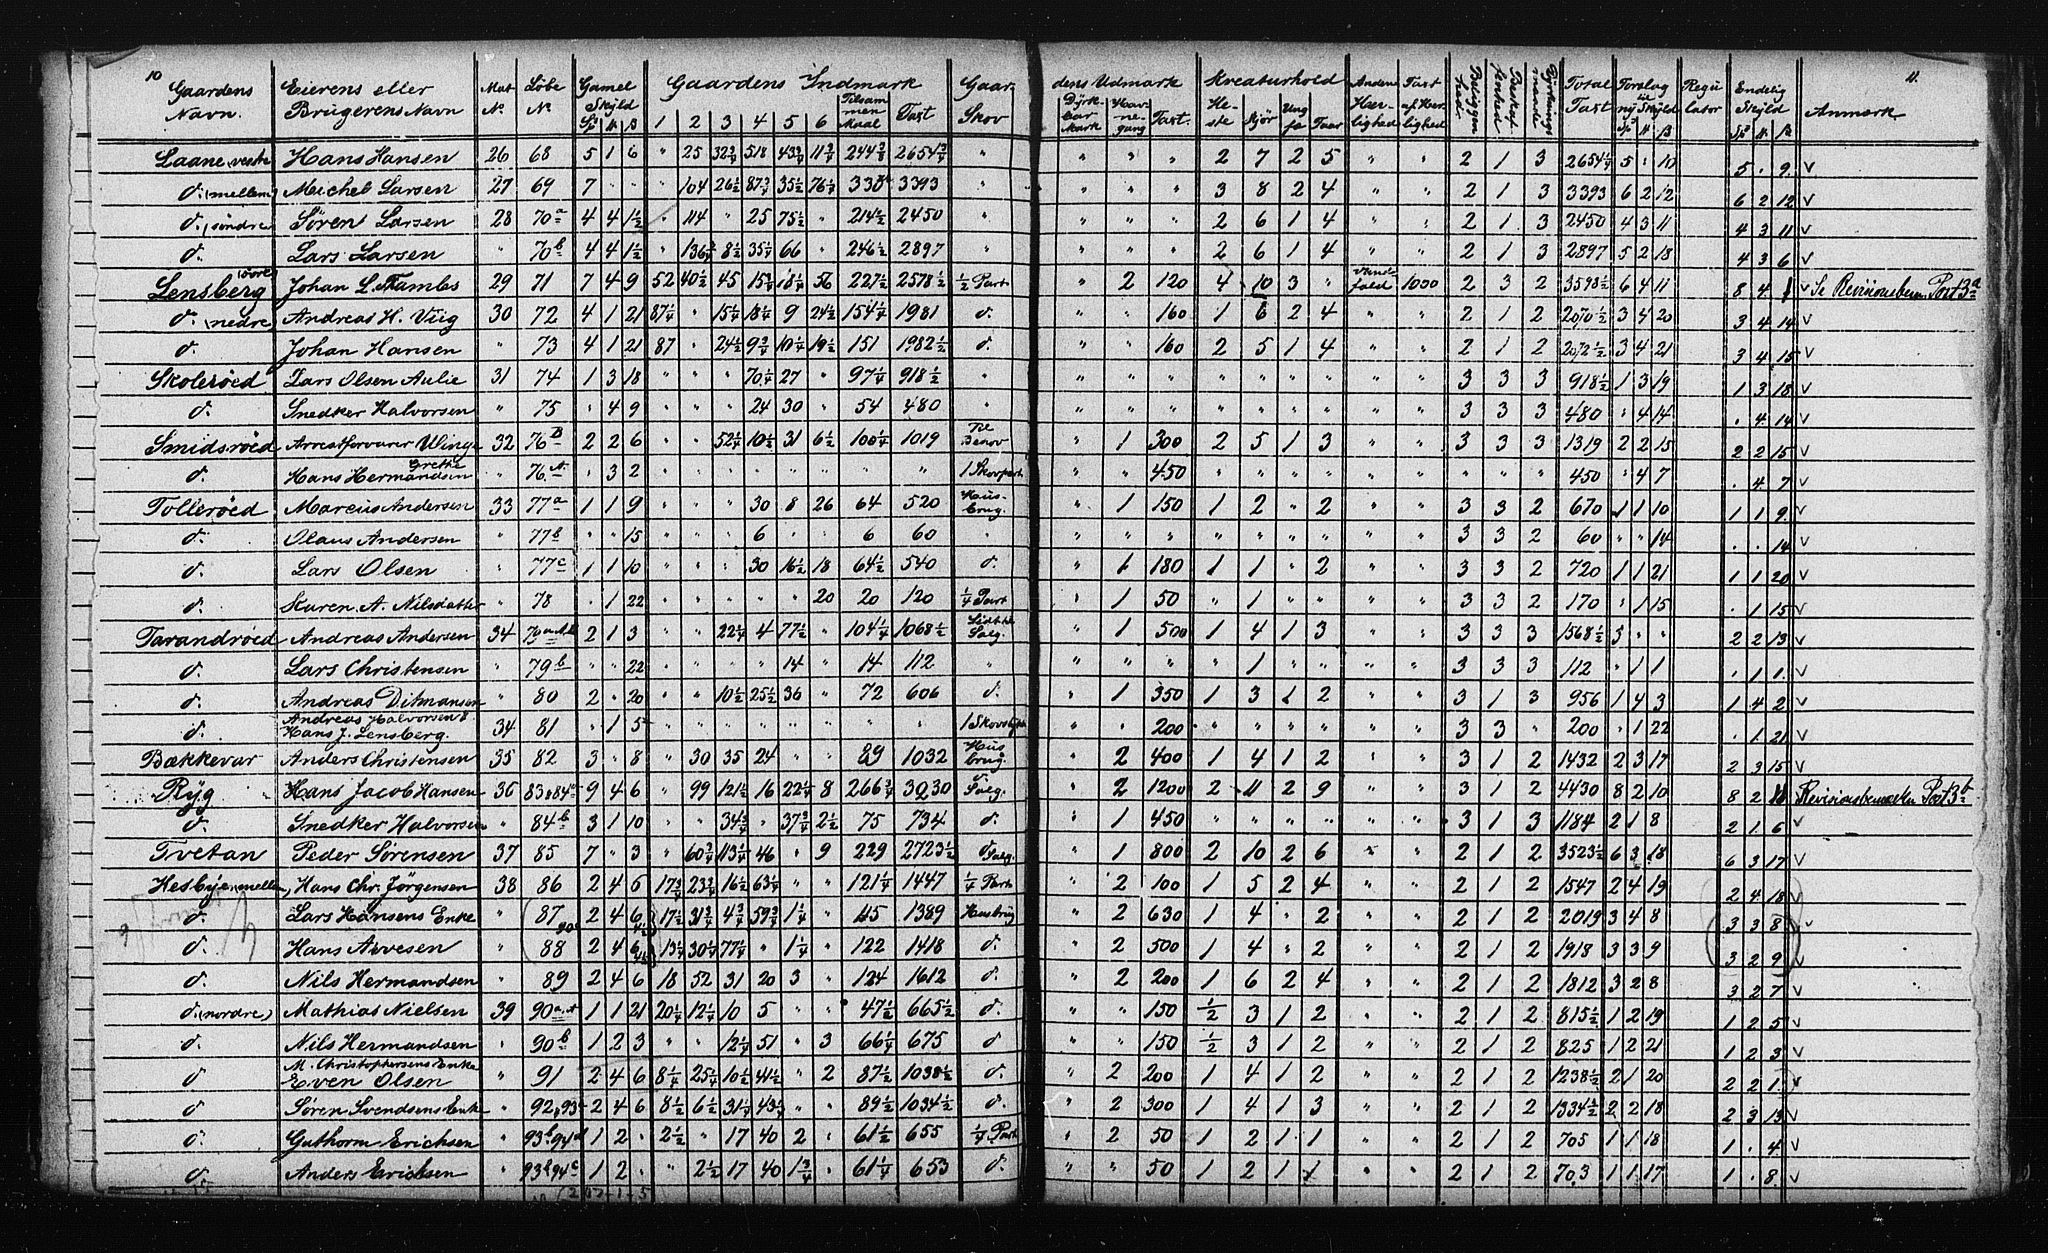 10
11.
Gaardens Navn. Eierens eller Brugerens Navn Mat N. Löbe N. Gamel Skyld Sp M β Gaardens Indmark 1 2 3 4 5 6 Tilsammen Maal Taxt Gaardens Udmark Skov Dyrkbar Mark Havnegang Taxt. Kreaturhold Heste Kjör Ungfæ Faar Anden Herlighed Taxt af Herlighed Total Taxt Forslag til ny Skyld Sp M β Regulator Endelig Skyld Sp M β Anmærk
Laane, vestre Hans Hansen 26 68 5 1 6 " 25 32¾ 518 43¾ 11¾ 244¾ 2654¾ " " " " 2 7 2 5 " " 2 1 3 2654¼ 5 " 10 5 . 9. v
d. (mellem Michel Larsen 27 69 7 " " " 104 26½ 87¾ 35½ 76½ 330 3393 " " " " 3 8 2 4 " " 2 1 3 3393 6 2 12 6 2 12 v
d. (söndre Sören Larsen 28 70a 4 4 1½ " 114 " 25 75½ " 214½ 2450 " " " " 2 6 1 4 " " 2 1 3 2450 4 3 11 4 3 11 v
d. Lars Larsen " 70b 4 4 1½ " 136¾ 8½ 35¼ 66 " 246½ 2897 " " " " 2 6 1 4 " " 2 1 3 2897 5 2 18 4 3 6 v
Lensberg (övre) Johan L. Tambs 29 71 7 4 9 52 40½ 45 15¾ 18¼ 56 227½ 2578½ ½ Part " 2 120 4 10 3 " Vandfald 1000 2 3 2 3598½ 6 4 11 8 4 1 v Se Revisionsbem. Post 3a
d. (nedre Andreas H. Viig 30 72 4 1 21 87¼ " 15¼ 18¼ 9 24½ 154¼ 1981 d. " " 160 1 6 2 4 " " 2 1 2 2070½ 3 4 20 3 4 14 v
d. Johan Hansen " 73 4 1 21 87 " 24½ 9¾ 10¼ 19½ 151 1982½ d. " " 160 2 5 1 4 " " 2 1 2 2072½ 3 4 21 3 4 15 v
Skoleröed Lars Olsen Aulie 31 74 1 3 18 " " " 70¼ 27 " 97¼ 918½ " " " " " " " " " " 3 3 3 918½ 1 3 19 1 3 18 v
d. Snedker Halvorsen " 75 " 4 9 " " " 24 30 " 54 480 " " " " " " " " " " 3 3 3 480 " 4 14 . 4 14 v
Smidsröed Arrestforvarer Winge 32 76B 2 2 6 " " 52¼ 10½ 31 6½ 100¼ 1019 Til Behov " 1 300 2 5 1 3 " " 3 3 3 1319 2 2 15 2 2 15 v
d. Hans Hermandsen Grethe " 76A. " 3 2 " " " " " " " " 1 Skovpart " " 450 " " " " " " " " " 450 " 4 7 . 4 7 v
Tolleröed Marcus Andersen 33 77a 1 1 9 " " " 30 8 26 64 520 Husbrug. " 1 150 1 2 " 2 " " 3 3 2 670 1 1 10 1 1 9. v
d. Olaus Andersen " 77b " " 15 " " " 6 " " 6 60 " " " " " " " " " " 3 3 2 60 " " 14 . . 14 v
d. Lars Olsen " 77c 1 1 10 " " " 30 16½ 18 64½ 540 d. " 1 180 1 1 " 2 " " 3 3 2 720 1 1 21 1 1 20 v
d. Karen A. Nilsdatter " 78 " 1 22 " " " " " 20 20 120 ¼ Part " 1 50 " 1 " " " " 3 3 2 170 " 1 15 . 1 15 v
Tarandröed Andreas Andersen 34 2 1 3 " " 22¼ 4 77½ " 104¼ 1068½ Lidt til Salg. " 1 500 1 4 1 3 " " 3 3 3 1568½ 3 " " 2 2 13 v
d. Lars Christensen " 79b " " 22 " " " " 14 " 14 112 " " " " " 1 " " " " 3 3 3 112 " 1 1 . 1 1. v
d. Andreas Ditmansen " 80 2 " 20 " " 10½ 25½ 36 " 72 606 d. " 1 350 1 3 1 2 " " 3 1 3 956 1 4 3 1 4 2 v
d. Andreas Halvorsen & Hans J. Lensberg. 34 81 " 1 5 " " " " " " " " 1 Skovstykke " " 200 " " " " " " 3 3 " 200 " 1 22 . 1 21 v
Bækkevar Anders Christensen 35 82 3 " 8 " 30 35 24 " " 89 1032 Husbrug. " 2 400 1 4 1 2 " " 3 1 2 1432 2 3 17 2 3 15 v
Ryg Hans Jacob Hansen 36 83 & 84a 9 4 6 " 99 121½ 16 22¼ 8 266¾ 3030 d. Salg. " 2 1200 2 11 2 9 " " 3 1 2 4430 8 2 10 8 2 10 Revisionsbemærken Post 3b
d. Snedker Halvorsen " 84b 3 1 10 " " 34¾ " 37¾ 2½ 75 734 d. " 1 450 " " " " " " 3 1 3 1184 2 1 8 2 1 6 v
Tvetan Peder Sörensen 37 85 7 " 3 " 60¾ 113¼ 46 " 9 229 2723½ d. Salg. " 1 800 2 10 2 6 " " 2 1 2 3523½ 6 3 18 6 3 17 v
Hesbye, mellem, Hans Chr. Jörgensen 38 86 2 4 6 17¾ 23¾ 16½ 63¼ " " 121¼ 1447 ¼ Part " 2 100 1 5 2 4 " " 2 1 2 1547 2 4 19 2 4 18 v
d. Lars Hansens Enke " 87 2 4 6 17½ 31¾ 4¾ 59¾ 1¼ " 115 1389 Husbrug " 2 630 1 4 " 2 " " 2 1 2 2019 3 4 8 3 3 8 v
d. Hans Arvesen " 88 2 4 6 13¼ 30¼ 77¼ " 1¼ " 122 1418 d. " 2 500 1 4 " 2 " " 2 1 2 1918 3 3 9 3 2 9 v
d. Nils Hermandsen " 89 2 4 6 18 52 31 20 3 " 124 1612 d. " 2 200 1 6 2 4 " " 2 1 2 1812 3 2 8 3 2 7 v
d. (nordre) Mathias Nielsen 39 90a 1 1 21 20¼ 12¼ 10 5 " " 47½ 665½ d. " " 150 ½ 3 1 2 " " 2 1 2 815½ 1 2 19 1 2 5 v
d. Nils Hermandsen " 90b 1 2 3 " " 12¼ 51 " 3 66¼ 675 d " " 150 ½ 3 1 2 " " 2 1 2 825 1 2 21 1 2 3 v
d M. Christophersens Enke Even Olsen " 91 2 4 6 8¼ 25¼ 10½ 41½ " 2 87½ 1038½ d. " 2 200 1 4 1 2 " " 2 1 2 1238½ 2 1 20 2 2 1. v
d. Sören Svendsens Enke " 92, 93a 2 4 6 8½ 6½ 31¼ 43¾ " " 89½ 1034½ d. " 2 300 1 4 1 3 " " 2 1 2 1334½ 2 2 18 2 3 13 v
d. Guthorm Erichsen " 93b 94d 1 2 . 2½ " 17 40 2 " 61½ 655 ¼ Part " 2 50 1 2 1 1 " " 2 1 2 705 1 1 18 1 . 4 v
d. Anders Erichsen " 1 2 . " 2½ 17 40 1¾ " 61¼ 653 d. " " 50 1 2 1 1 " " 2 1 2 703 1 1 17 1 . 8. v